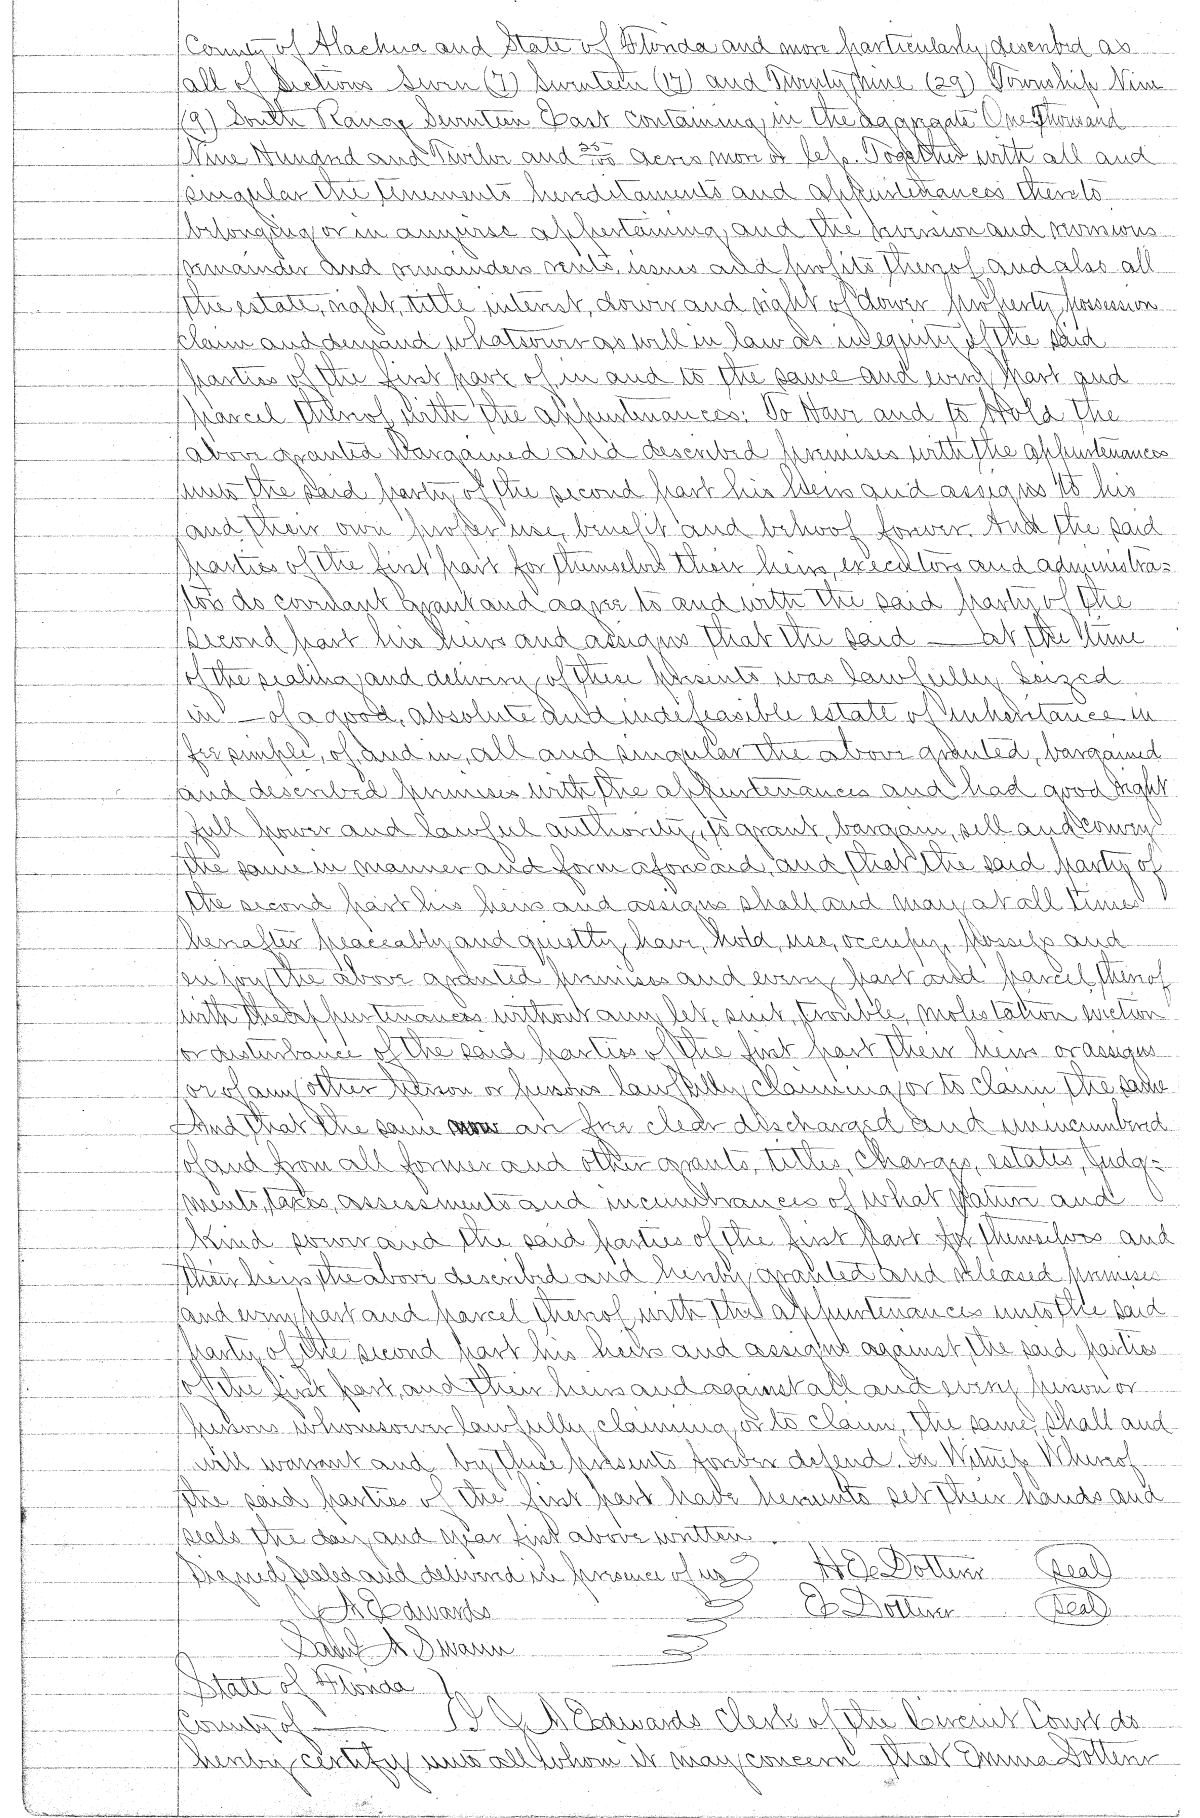 County of Alachua and State of Florida and more particularly described as
all of Sections Seven (7) Seventeen (17) and Twenty Nine (29) Township Nine
(9) South Range Seventeen East containing in the aggregate One Thousand
Nine Hundred and Twelve and 25/100 acres more or less. Together with all and
singular the tenements hereditaments and appurtenances thereto
belonging or in anywise appertaining and the reversion and reversions
remainder and remainders rents, issues and profits thereof, and also all
the estate, right, title interest, dower and right of dower property, possession
claim and demand whatsoever as well in law as in equity of the said
parties of the first part of in and to the same and every part and
parcel thereof with the appurtenances: To Have and to Hold the
above granted bargained and described premises with the appurtenances
unto the said party of the second part his heirs and assigns to his
and their own proper use, benefit and behoof forever. And the said
parties of the first part for themselves their heirs, executors and administra=
tors do covenant grant and agree to and with the said party of the
second part his heirs and assigns that the said — at the time
of the sealing and delivery of these presents was lawfully seized
in — of a good, absolute and indefeasible estate of inheritance in
fee simple, of, and in, all and singular the above granted, bargained
and described premises with the appurtenances and had good right
full power and lawful authority, to grant, bargain, sell and convey
the same in manner and form aforesaid, and that the said party of
the second part his heirs and assigns shall and may at all times
hereafter peaceably and quietly, have, hold, use, occupy, possess and
enjoy the above granted premises and every part and parcel thereof
with the appurtenances without any let, suit, trouble, molestation eviction
or disturbance of the said parties of the first part their heirs or assigns
or of any other person or persons lawfully claiming or to claim the same
And that the same now are free clear discharged and unincumbered
of and from all former and other grants, titles, charges, estates, Judg=
ments, taxes, assessments and incumbrances of what nature and
kind soever and the said parties of the first part for themselves and
their heirs the above described and hereby granted and released premises
and every part and parcel thereof, with the appurtenances unto the said
party of the second part his heirs and assigns against the said parties
of the first part, and their heirs and against all and every person or
persons whomsoever lawfully claiming or to claim, the same, shall and
will warrant and by these presents forever defend. In Witness Whereof
the said parties of the first part have hereunto set their hands and
seals the day and year first above written.
Signed Sealed and delivered in presence of us H E Dotterer Seal
J A Edwards E Dotterer Seal
Saml A Swann
State of Florida
County of — I J A Edwards Clerk of the Circuit Court do
hereby certify unto all whom it may concern that Emma Dotterer